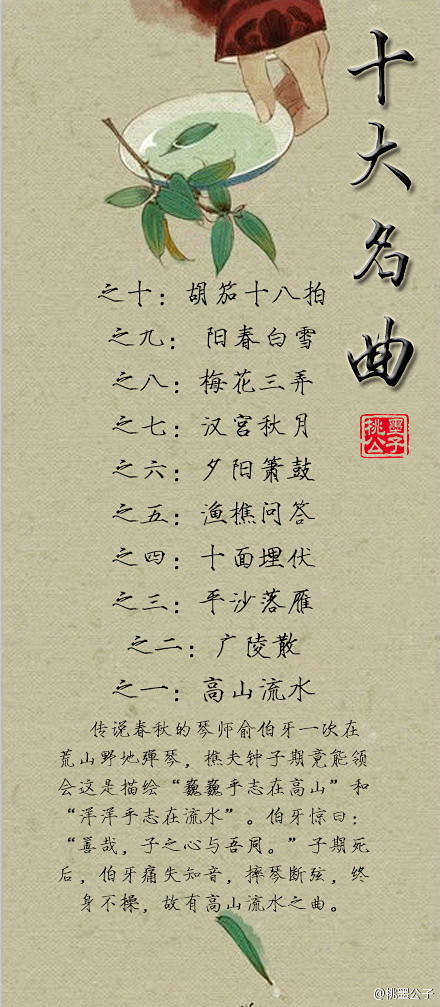 十大名曲
桃墨
公子
之十：胡笳十八拍
之九：阳春白雪
之八：梅花三弄
之七：汉宫秋月
之六：夕阳箫鼓
之五：渔樵问答
之四：十面埋伏
之三：平沙落雁
之二：广陵散
之一：高山流水
传说春秋的琴师俞伯牙一次在
荒山野地弹琴，樵夫钟子期竟能领
会这是描绘“巍巍乎志在高山”和
“洋洋乎志在流水”。伯牙惊曰：
“善哉，子之心与吾同。”子期死
后，伯牙痛失知音，摔琴断弦，终
身不操，故有高山流水之曲。
@桃墨公子